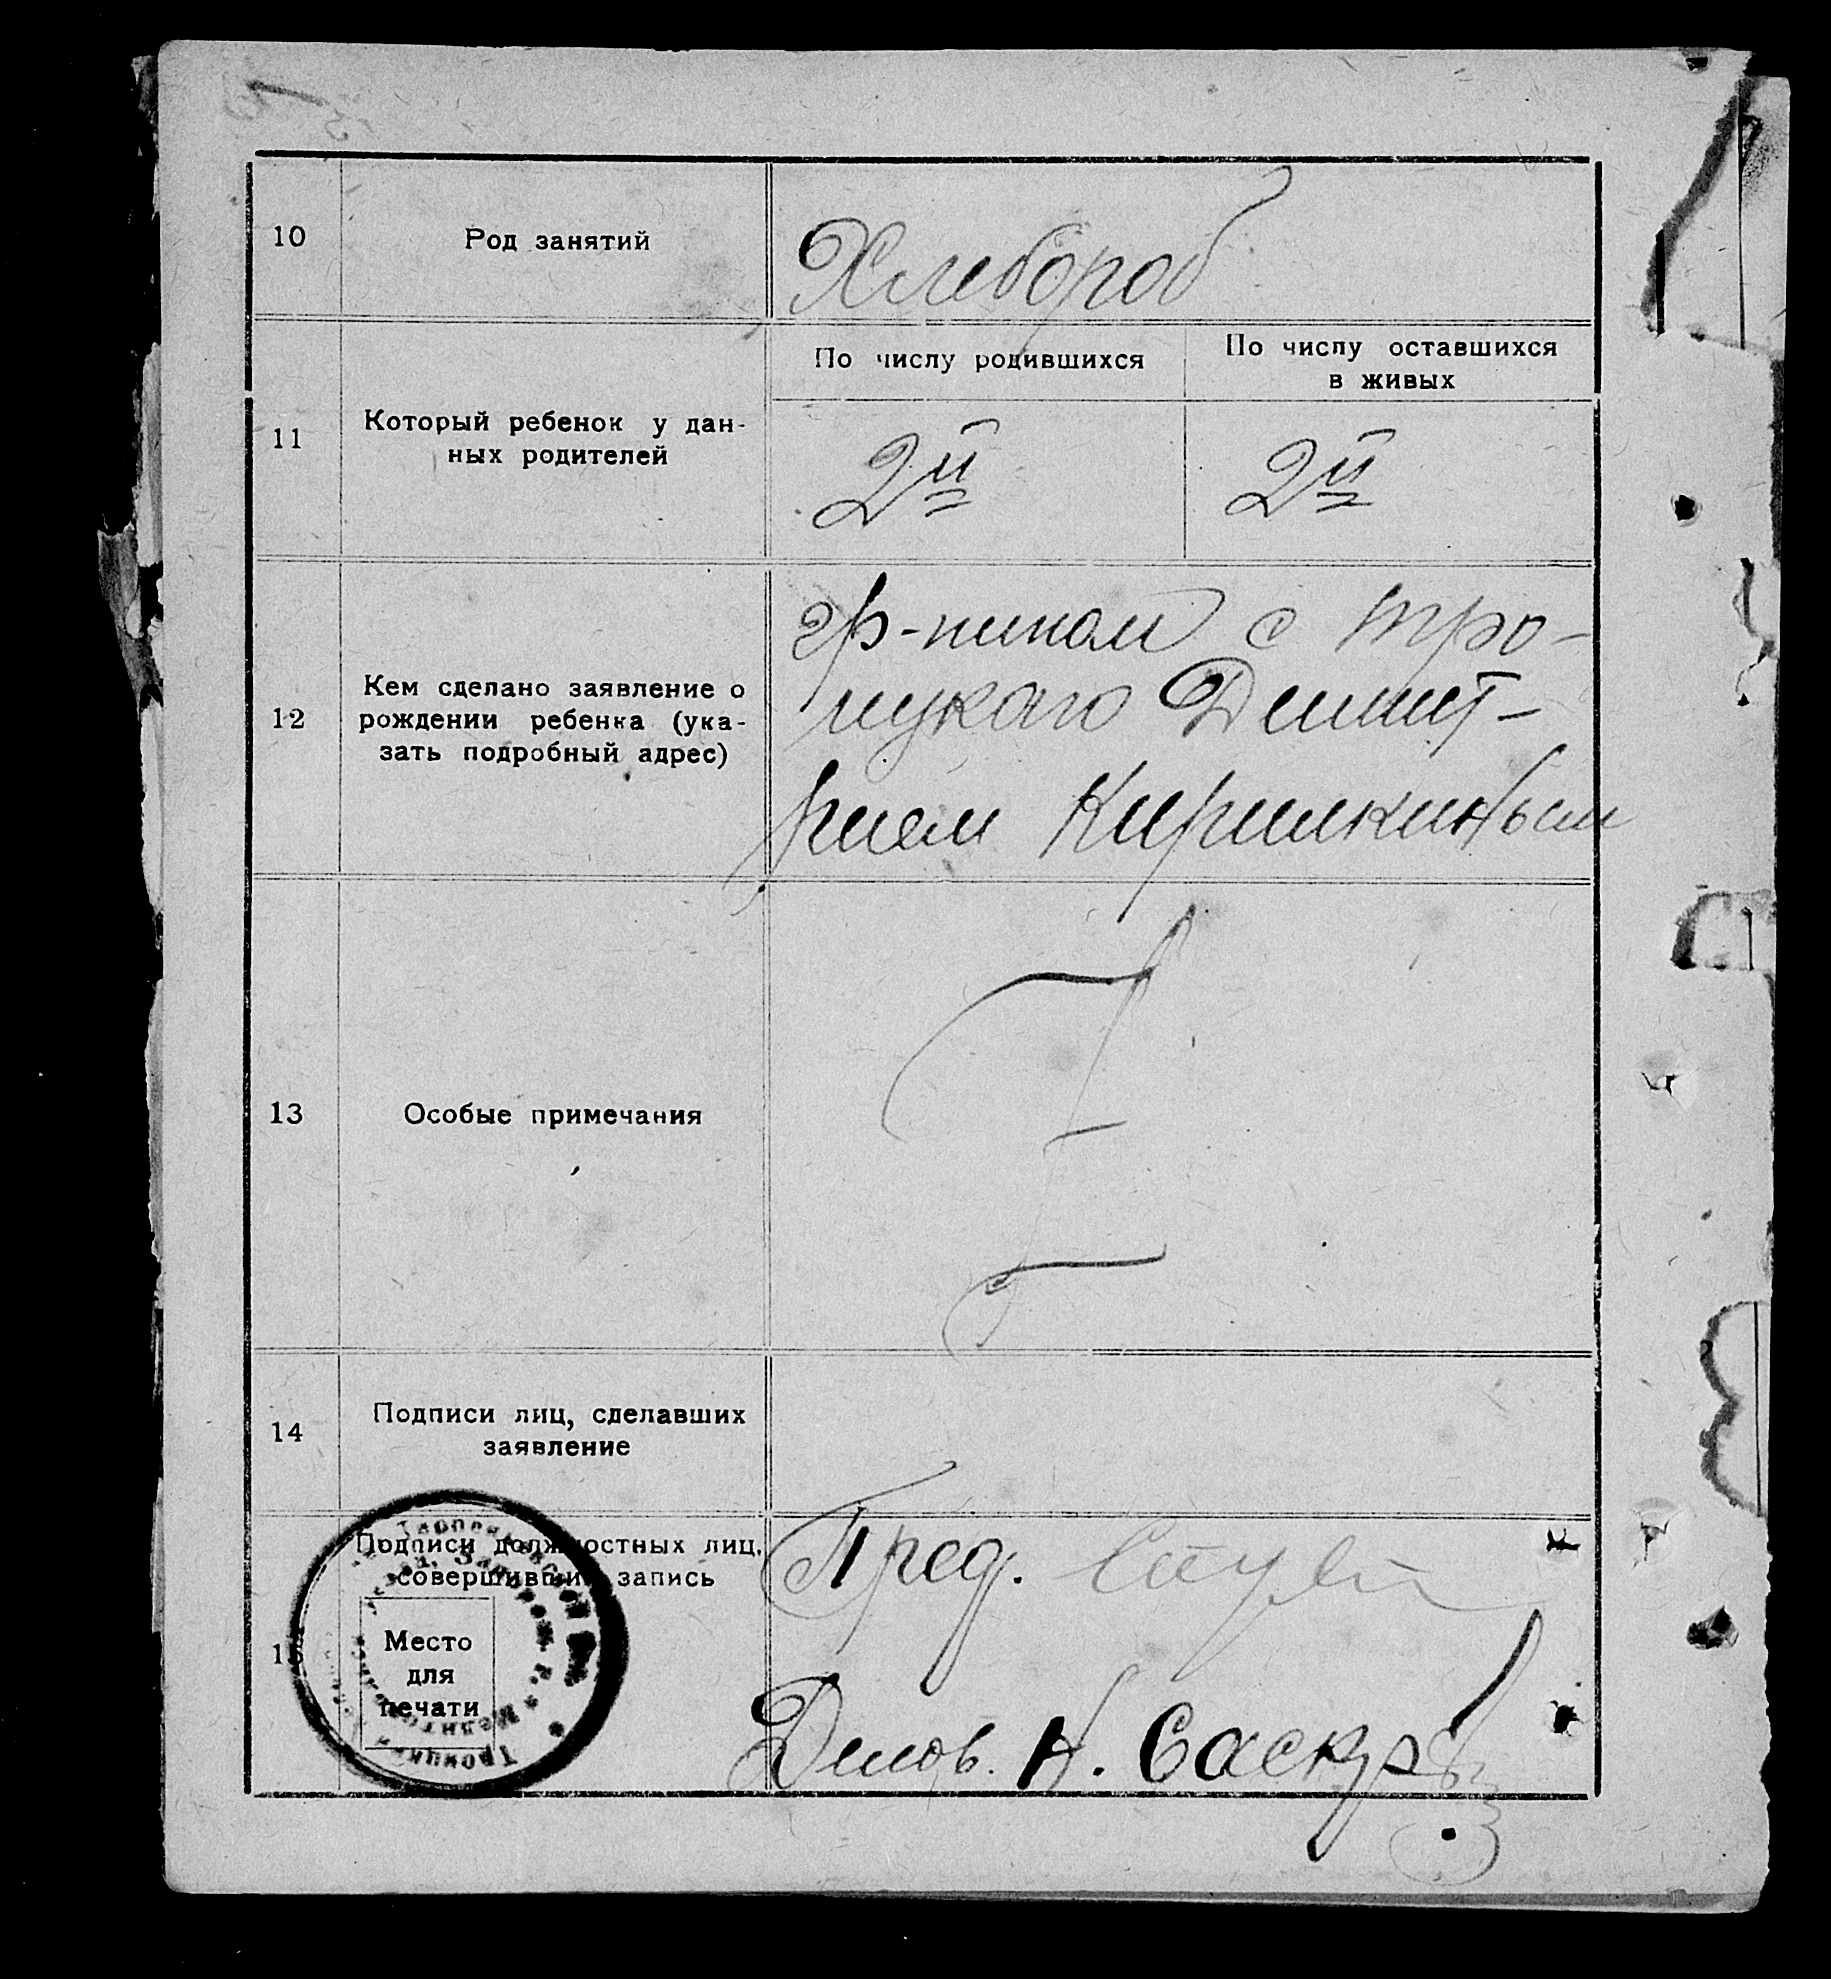 10
Род занятий
Хлебороб
11
Который ребенок у дан-
ных родителей
По числу родившихся
2й
По числу оставшихся
в живых
2й
12
Кем сделано заявление о
рождении ребенка (ука-
зать подробный адрес)
гр-нином с Тро-
ицкаго Димит-
рием Кирилкиным
13
Особые примечания
14
Подписи лиц, сделавших
заявление
Подписи должностных лиц,
совершивших запись
Место
для
печати
Пред.
Делов. Н.